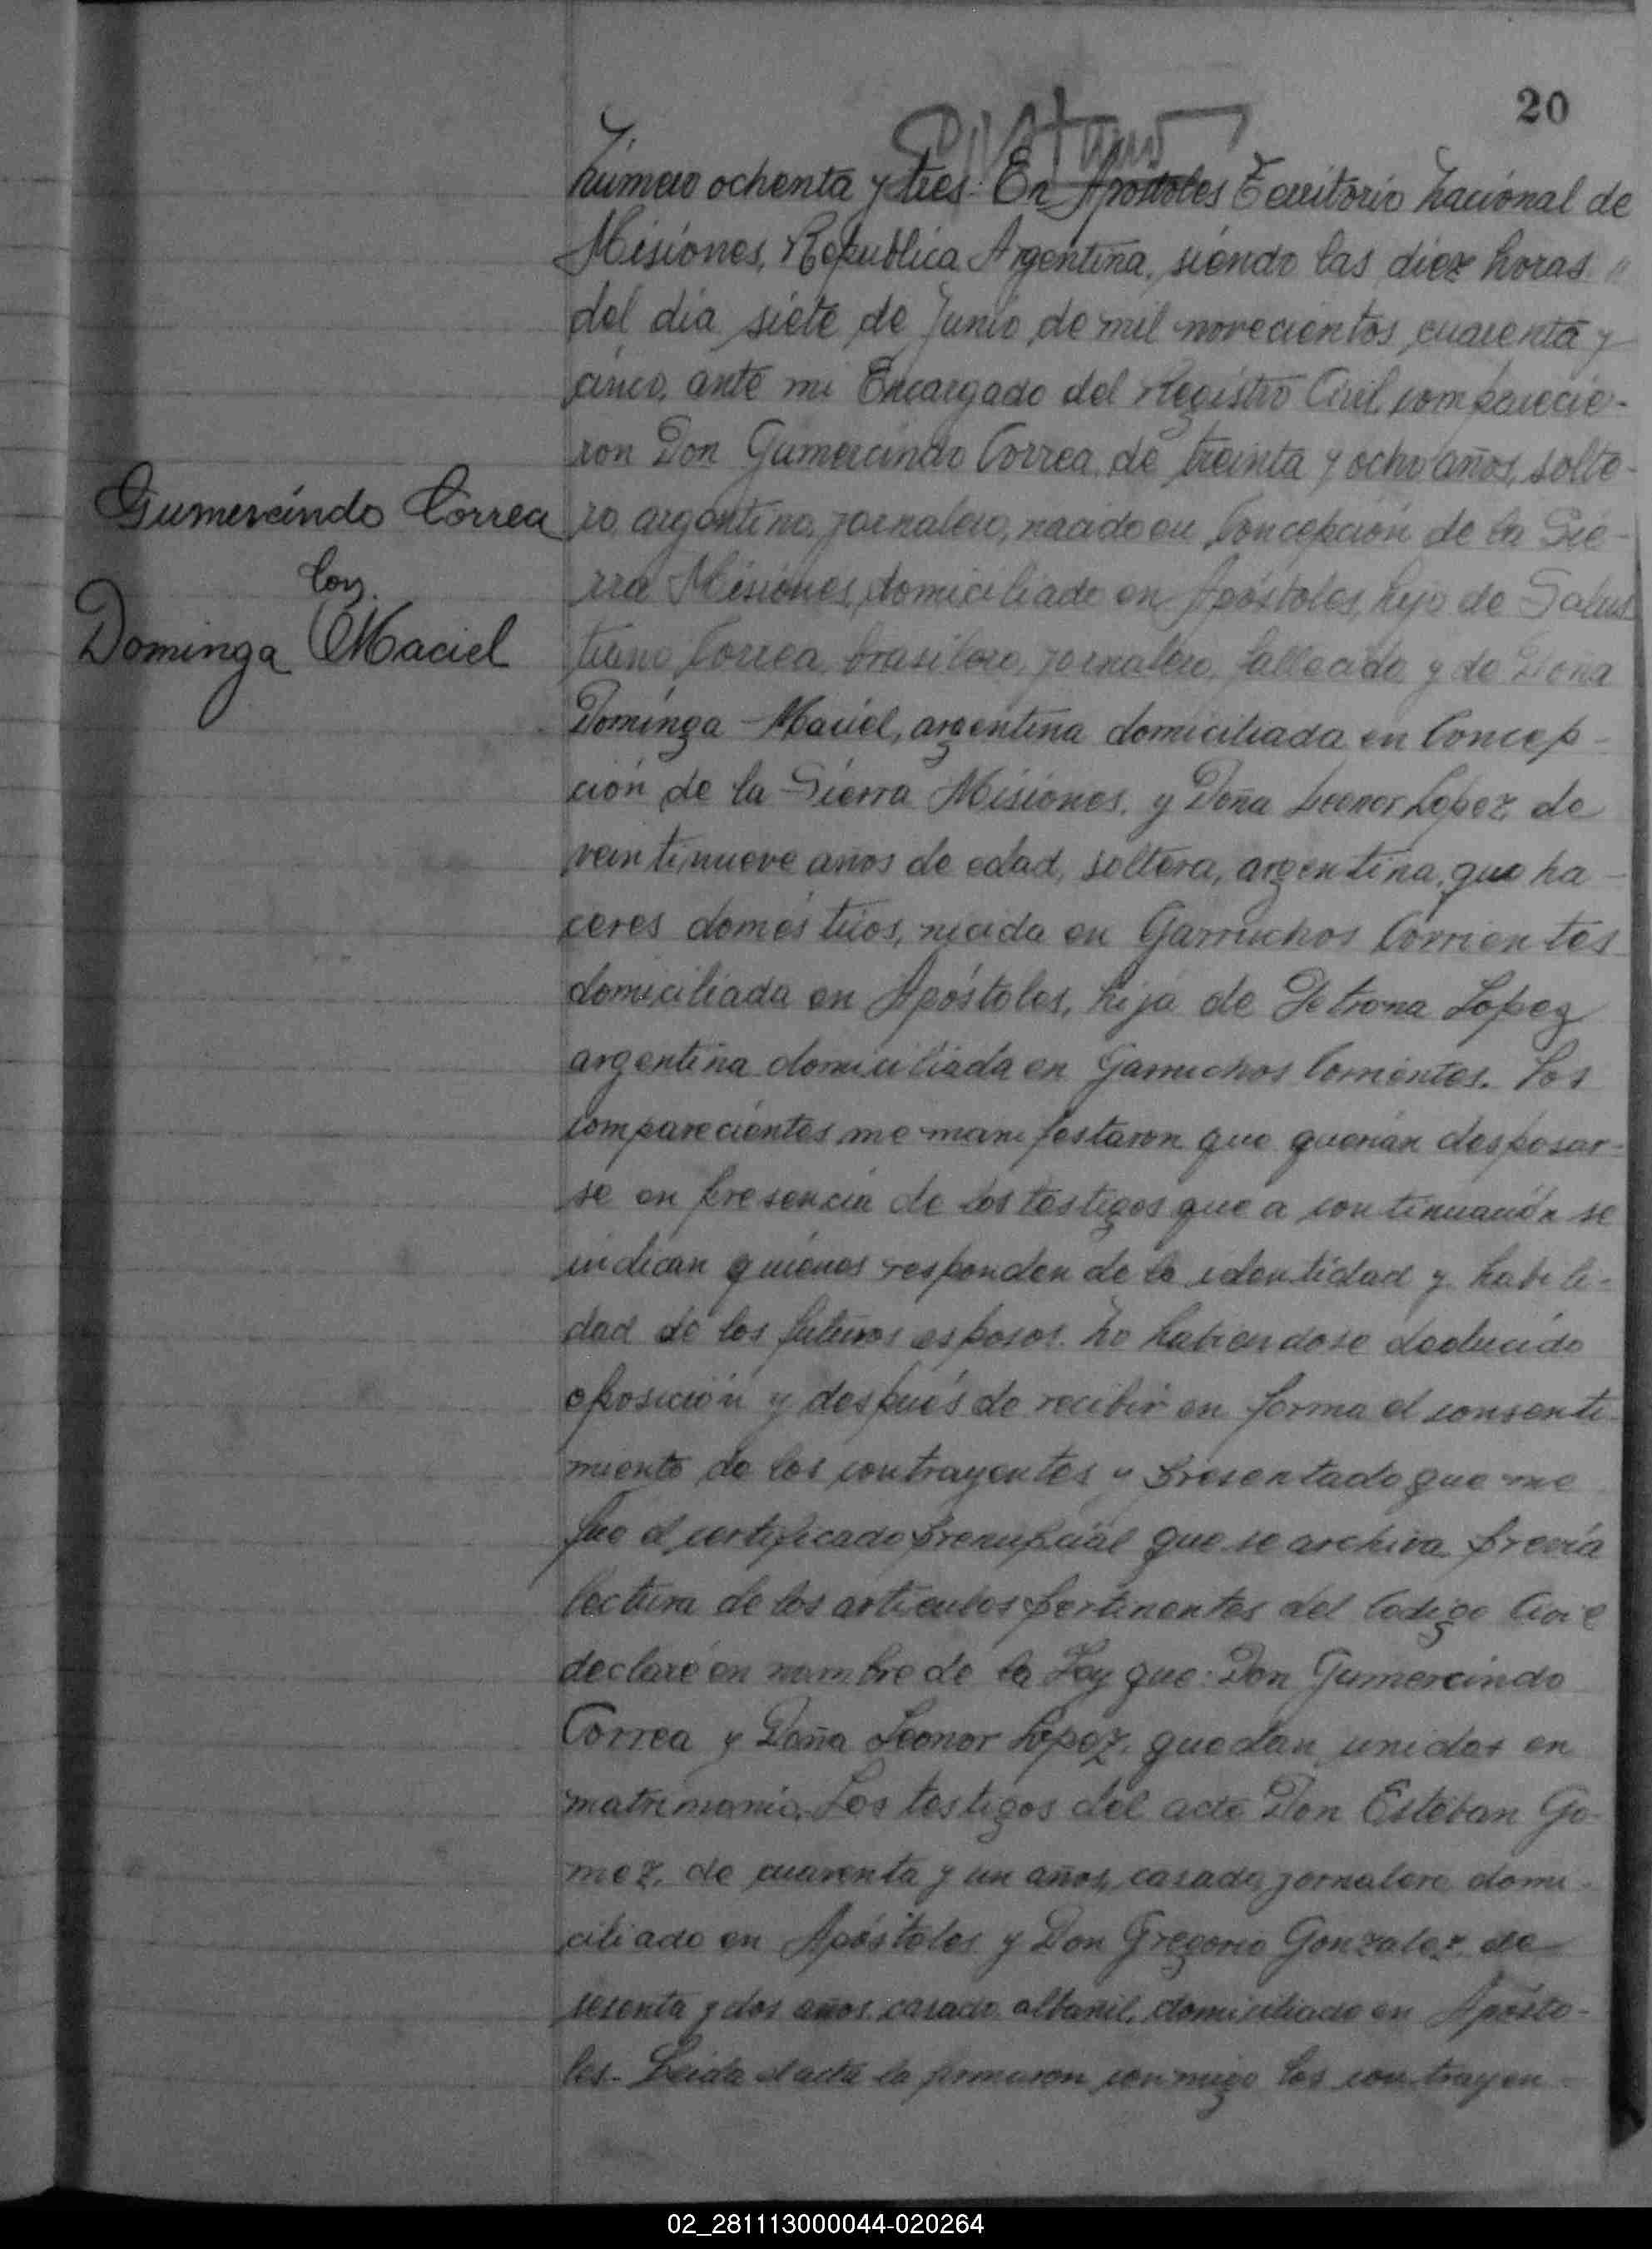 20
Número ochenta y tres. En Apóstoles Territorio Nacional de
Misiones, Republica Argentina, siendo las diez horas
del día siete de Junio de mil novecientos cuarenta y
cinco, ante mi Encargado del Registro Civil comparecie-
ron Don Gumercindo Correa, de treinta y ocho años, solte-
Gumercindo Correa
ro, argentino, jornalero, nacido en Concepción de la Sie-
con
rra Misiones, domiciliado en Apóstoles, hijo de Salus-
Dominga Maciel
tiano Correa, brasilero, jornalero, fallecido y de Doña
Dominga Maciel, argentina domiciliada en Concep-
ción de la Sierra Misiones, y Doña Leonor Lopez de
veintinueve años de edad, soltera, argentina, que ha-
ceres domésticos, nacida en Garruchos Corrientes
domiciliada en Apóstoles, hija de Petrona Lopez
argentina domiciliada en Garruchos Corrientes. Los
comparecientes me manifestaron que querían desposar-
se en presencia de los testigos que a continuación se
indican quienes responden de la identidad y habili-
dad de los futuros esposos. No habiendose deducido
oposición y después de recibir en forma el consenti-
miento de los contrayentes y presentado que me
fue el certificado prenupcial que se archiva previa
lectura de los artículos pertinentes del Codigo Civil
declaré en nombre de la Ley que: Don Gumercindo
Correa y Doña Leonor Lopez, quedan unidos en
matrimonio. Los testigos del acto Don Esteban Go-
mez, de cuarenta y un años, casado, jornalero domi-
ciliado en Apóstoles y Don Gregorio Gonzalez de
sesenta y dos años, casado, albañil, domiciliado en Apósto-
les. Leida el acta la firmaron conmigo los contrayen-
02_281113000044-020264